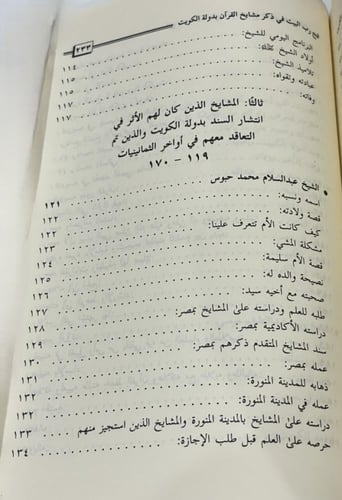 فتح رب البيت في ذكر مشايخ القرآن بدولة الكويت
٢٣٣
البرنامج اليومي للشيخ:
أولاد الشيخ كلك: ١١٤
تلاميذ الشيخ: ١١٥
عبادته وتقواه: ١١٥
وفاته: ١١٧
١١٧
ثالثًا: المشايخ الذين كان لهم الأثر في
انتشار السند بدولة الكويت والذين تم
التعاقد معهم في أواخر الثمانينيات
١١٩ - ١٧٠
• الشيخ عبدالسلام محمد حبوس
اسمه ونسبه: ١٢١
قصة ولادته: ١٢٢
كيف كانت الأم تتعرف علينا: ١٢٢
مشكلة المشي: ١٢٣
قصة الأم سليمة: ١٢٤
نصيحة والده له: ١٢٥
صحبته مع أخيه سيد: ١٢٦
طلبه للعلم ودراسته على المشايخ بمصر: ١٢٧
دراسته الأكاديمية بمصر: ١٢٨
سند المشايخ المتقدم ذكرهم بمصر: ١٢٩
عمله بمصر: ١٣٠
ذهابه للمدينة المنورة: ١٣١
عمله في المدينة المنورة: ١٣٢
دراسته على المشايخ بالمدينة المنورة والمشايخ الذين استجيز منهم ١٣٢
حرصه على العلم قبل طلب الإجازة: ١٣٣
١٣٤